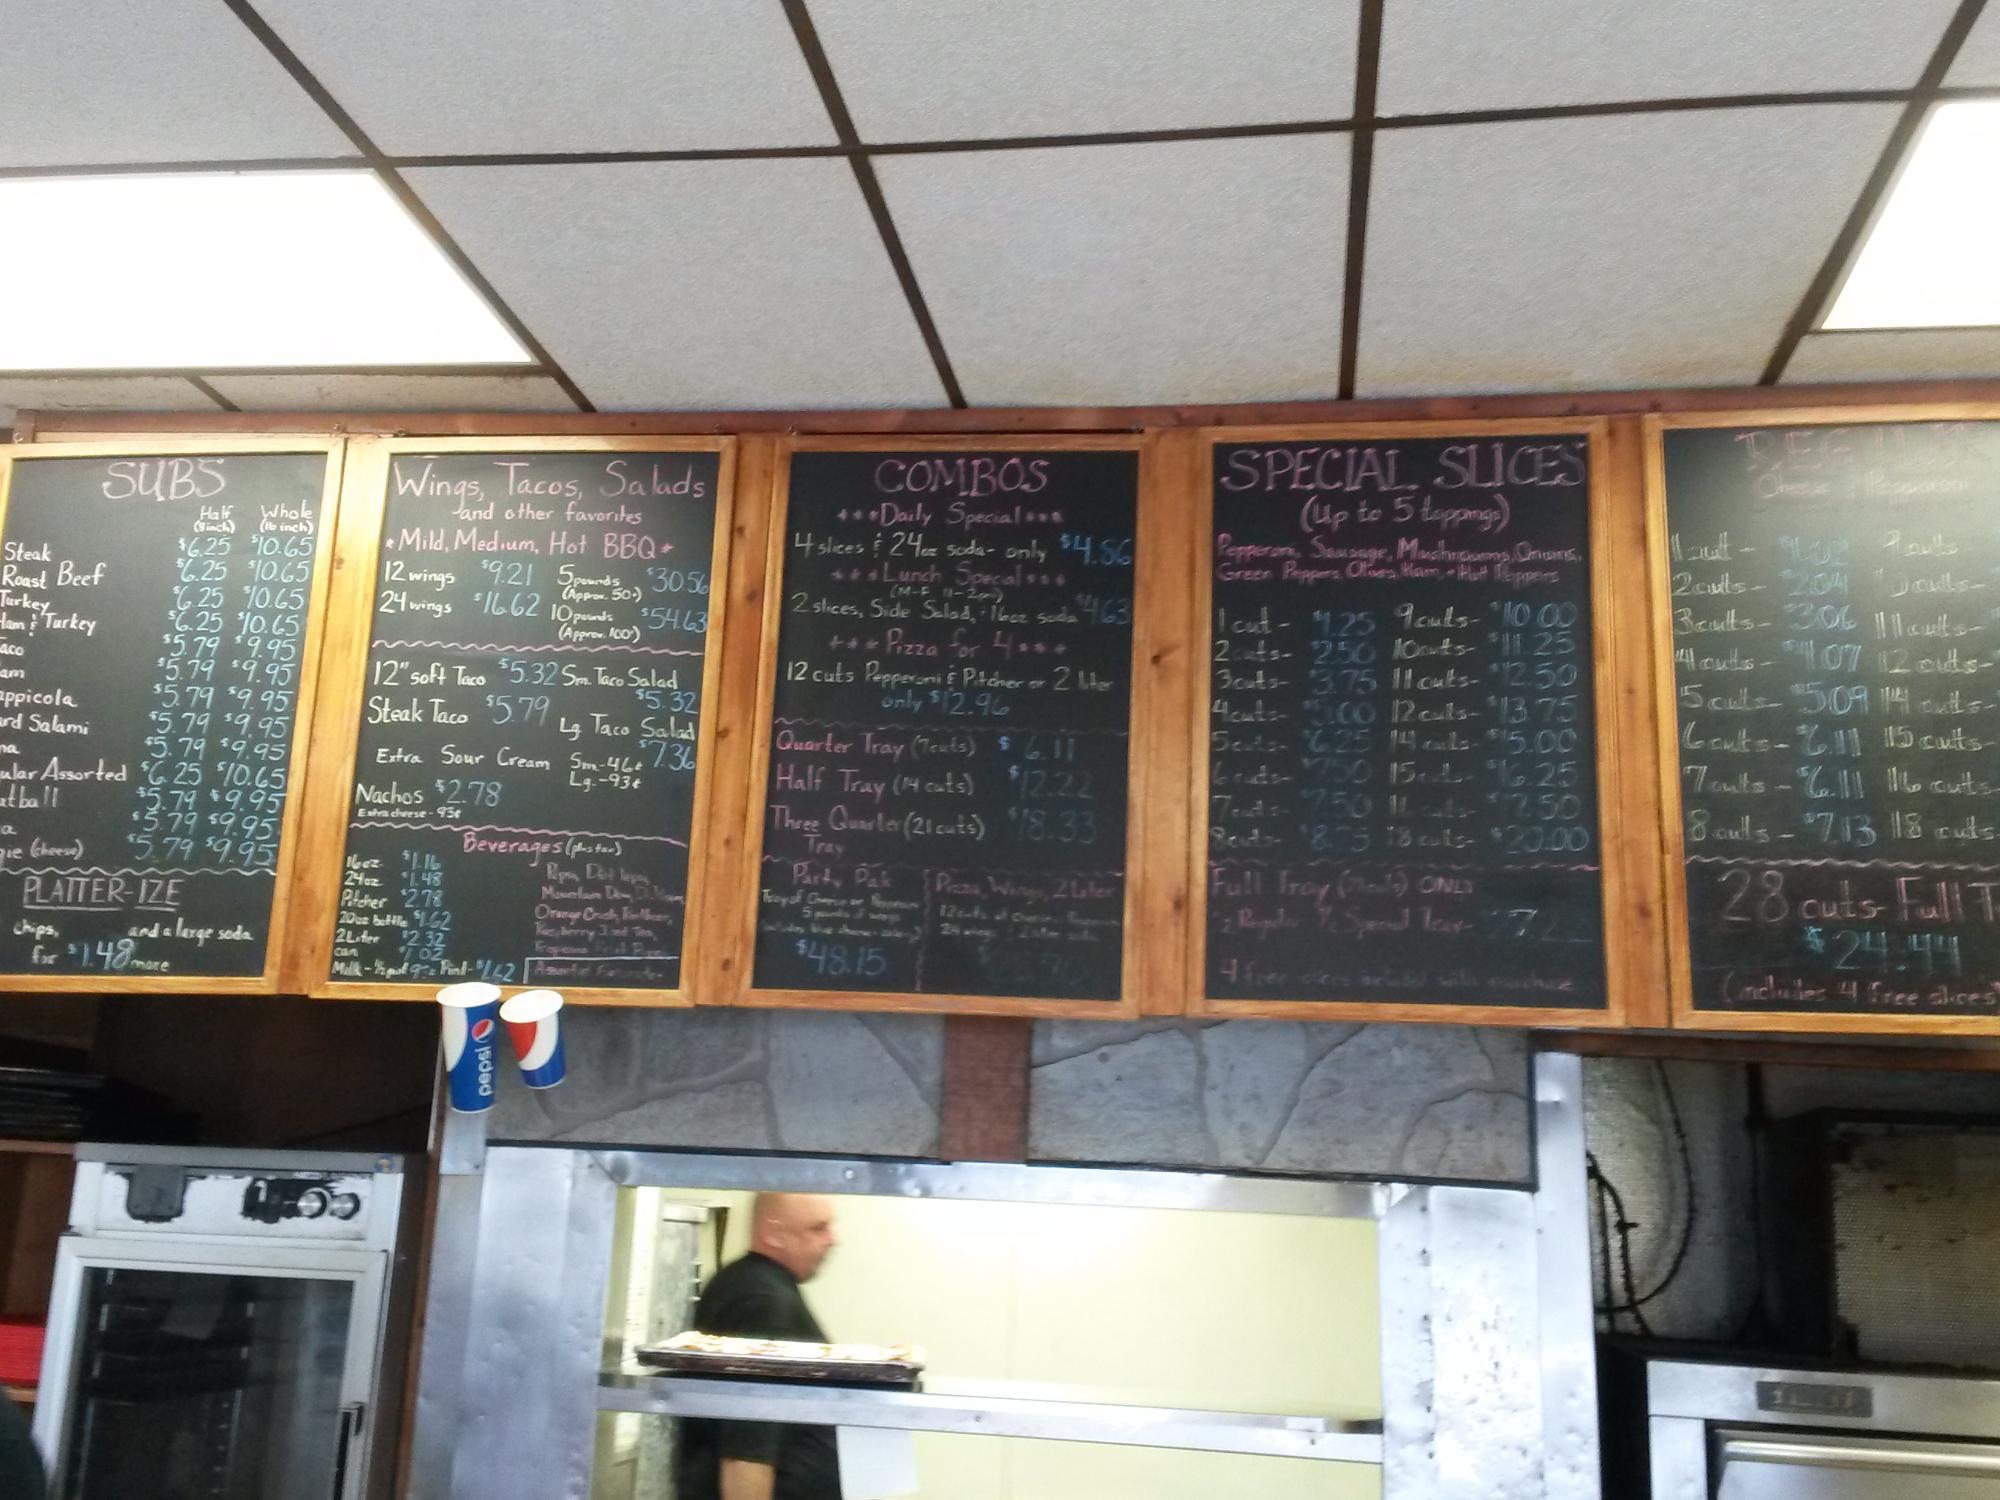 SUBS
Half Whole
(8inch) (16 inch)
Steak $6.25 $10.65
Roast Beef $6.25 $10.65
Turkey $6.25 $10.65
Ham & Turkey $6.25 $10.65
aco $5.79 $9.95
am $5.79 $9.95
appicola $5.79 $9.95
ard Salami $5.79 $9.95
na $5.79 $9.95
ular Assorted $6.25 $10.65
atball $5.79 $9.95
a $5.79 $9.95
gie (cheese) $5.79 $9.95
PLATTER-IZE
chips, and a large soda
for $1.48 more
Wings, Tacos, Salads
and other favorites
* Mild, Medium, Hot BBQ *
12 wings $9.21
24 wings $16.62
5 pounds $30.56
(Approx. 50)
10 pounds $54.63
(Approx. 100)
12" soft Taco $5.32
Steak Taco $5.79
Sm. Taco Salad
$5.32
Lg. Taco Salad
$7.36
Extra Sour Cream Sm.-46¢
Lg.-93¢
Nachos $2.78
Extra cheese - 93¢
Beverages (plus tax)
16oz $1.16
24oz $1.48
Pitcher $2.78
20oz bottle $1.62
2 Liter $2.32
can $1.02
Milk - ½ pint 93¢ Pint - $1.62
Pepsi, Diet Pepsi,
Mountain Dew,
Orange Crush,
COMBOS
***Daily Special***
4 slices & 24oz soda- only $4.86
***Lunch Special***
(M-F 11-2pm)
2 slices, Side Salad, 16oz soda $4.63
***Pizza for 4***
12 cuts Pepperoni & Pitcher or 2 liter
only $12.96
Quarter Tray (7cuts) $6.11
Half Tray (14 cuts) $12.22
Three Quarter (21 cuts) $18.33
Tray
Party Pak
$48.15
Pizza, Wings, 2 Liter
SPECIAL SLICES
(Up to 5 toppings)
Pepperoni, Sausage, Mushrooms, Onions,
Green Peppers, Olives, Ham + Hot Peppers
1 cut - $1.25
2 cuts- $2.50
3 cuts- $3.75
4 cuts- $5.00
5 cuts- $6.25
6 cuts- $7.50
7 cuts- $7.50
8 cuts- $8.75
9 cuts- $10.00
10 cuts- $11.25
11 cuts- $12.50
12 cuts- $13.75
14 cuts- $15.00
15 cuts- $16.25
16 cuts- $17.50
18 cuts- $20.00
Full Tray (28cuts) ONLY
½ Regular ½ Special Tray-
4 free slices included with purchase
Cheese & Pepperoni
1 cut - $1.02
2 cuts - $2.04
3 cuts - $3.06
4 cuts - $4.07
5 cuts - $5.09
6 cuts - $6.11
7 cuts - $6.11
8 cuts - $7.13
9 cuts
10 cuts-
11 cuts-
12 cuts-
14 cuts-
15 cuts-
16 cuts-
18 cuts-
28 cuts- Full T
$24.44
(includes 4 free slices)
pepsi